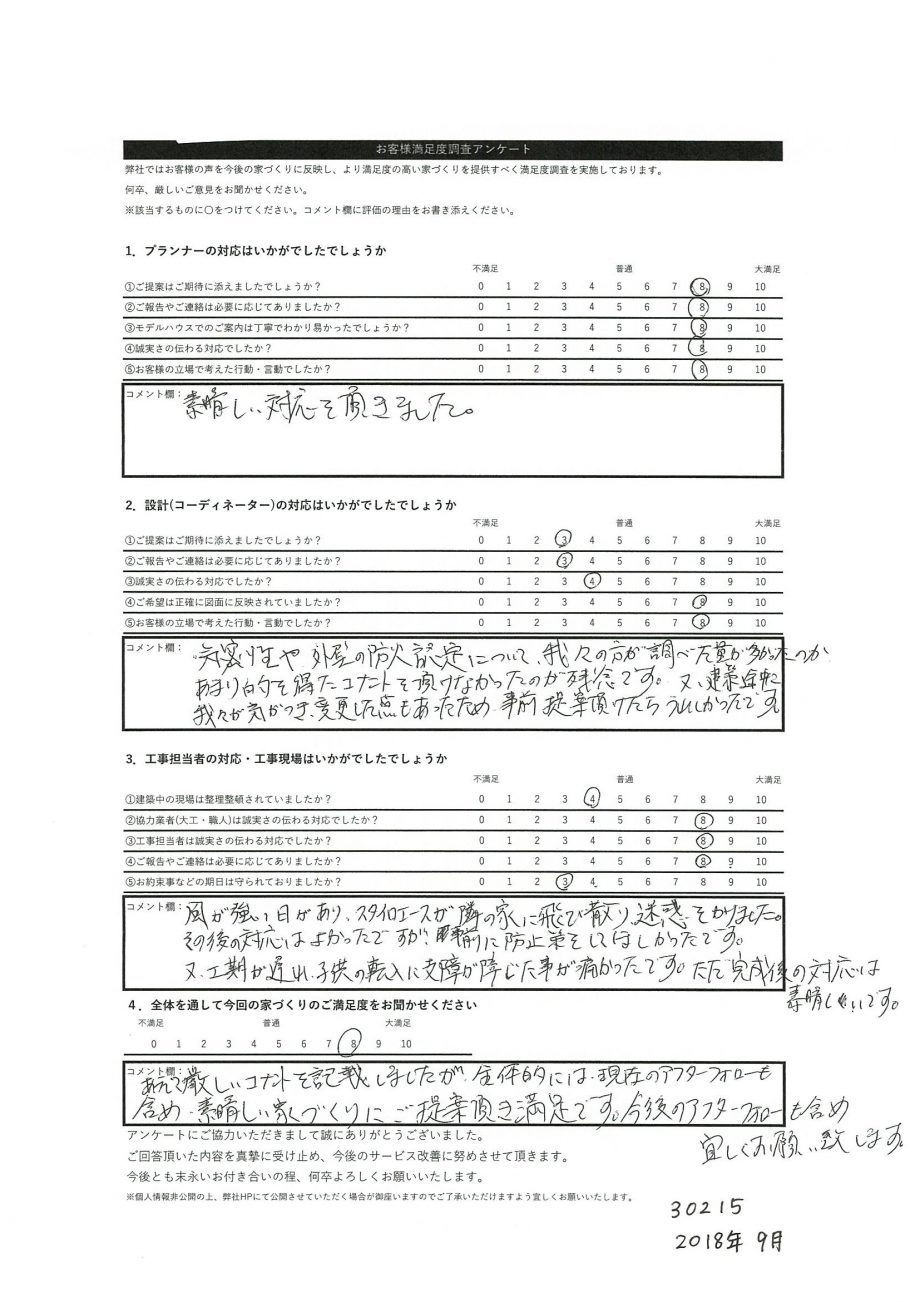 お客様満足度調査アンケート
弊社ではお客様の声を今後の家づくりに反映し、より満足度の高い家づくりを提供すべく満足度調査を実施しております。
何卒、厳しいご意見をお聞かせください。
※該当するものに〇をつけてください。コメント欄に評価の理由をお書き添えください。
1．プランナーの対応はいかがでしたでしょうか
不満足 普通 大満足
①ご提案はご期待に添えましたでしょうか？ 0 1 2 3 4 5 6 7 8 9 10
②ご報告やご連絡は必要に応じてありましたか？ 0 1 2 3 4 5 6 7 8 9 10
③モデルハウスでのご案内は丁寧でわかり易かったでしょうか？ 0 1 2 3 4 5 6 7 8 9 10
④誠実さの伝わる対応でしたか？ 0 1 2 3 4 5 6 7 8 9 10
⑤お客様の立場で考えた行動・言動でしたか？ 0 1 2 3 4 5 6 7 8 9 10
コメント欄：素晴しい対応を頂きました。
2．設計(コーディネーター)の対応はいかがでしたでしょうか
不満足 普通 大満足
①ご提案はご期待に添えましたでしょうか？ 0 1 2 3 4 5 6 7 8 9 10
②ご報告やご連絡は必要に応じてありましたか？ 0 1 2 3 4 5 6 7 8 9 10
③誠実さの伝わる対応でしたか？ 0 1 2 3 4 5 6 7 8 9 10
④ご希望は正確に図面に反映されていましたか？ 0 1 2 3 4 5 6 7 8 9 10
⑤お客様の立場で考えた行動・言動でしたか？ 0 1 2 3 4 5 6 7 8 9 10
コメント欄：気密性や外壁の防火認定について、我々の方が調べた量が多かったのか
あまり的を得たコメントを頂けなかったのが残念です。又、建築途中に
我々が気がつき、変更した点もあったため、事前提案頂けたらうれしかったです。
3．工事担当者の対応・工事現場はいかがでしたでしょうか
不満足 普通 大満足
①建築中の現場は整理整頓されていましたか？ 0 1 2 3 4 5 6 7 8 9 10
②協力業者(大工・職人)は誠実さの伝わる対応でしたか？ 0 1 2 3 4 5 6 7 8 9 10
③工事担当者は誠実さの伝わる対応でしたか？ 0 1 2 3 4 5 6 7 8 9 10
④ご報告やご連絡は必要に応じてありましたか？ 0 1 2 3 4 5 6 7 8 9 10
⑤お約束事などの期日は守られておりましたか？ 0 1 2 3 4 5 6 7 8 9 10
コメント欄：風が強い日があり、スタイロエースが隣の家に飛び散り、迷惑をかけました。
その後の対応はよかったですが、事前に防止策をしてほしかったです。
又、工期が遅れ、子供の転入に支障が障じた事が痛かったです。ただ完成後の対応は
素晴しいです。
４．全体を通して今回の家づくりのご満足度をお聞かせください
不満足 普通 大満足
0 1 2 3 4 5 6 7 8 9 10
コメント欄：あえて厳しいコメントを記載しましたが、全体的には、現在のアフターフォローも
含め、素晴しい家づくりにご提案頂き満足です。今後のアフターフォローも含め
宜しくお願い致します。
アンケートにご協力いただきまして誠にありがとうございました。
ご回答頂いた内容を真摯に受け止め、今後のサービス改善に努めさせて頂きます。
今後とも末永いお付き合いの程、何卒よろしくお願いいたします。
※個人情報非公開の上、弊社HPにて公開させていただく場合が御座いますのでご了承いただけますよう宜しくお願いいたします。
30215
2018年 9月